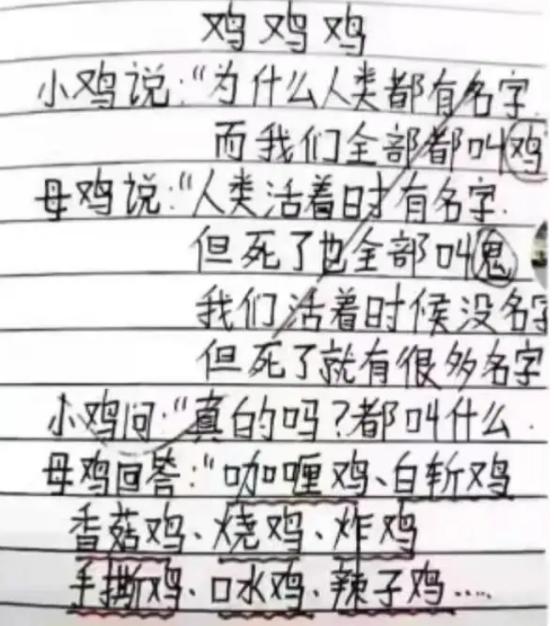 鸡鸡鸡
小鸡说:“为什么人类都有名字
而我们全部都叫鸡
母鸡说:“人类活着时有名字.
但死了也全部叫鬼
我们活着时候没名字
但死了就有很多名字
小鸡问:“真的吗?都叫什么.
母鸡回答:“咖喱鸡、白斩鸡
香菇鸡、烧鸡、炸鸡
手撕鸡、口水鸡、辣子鸡.....